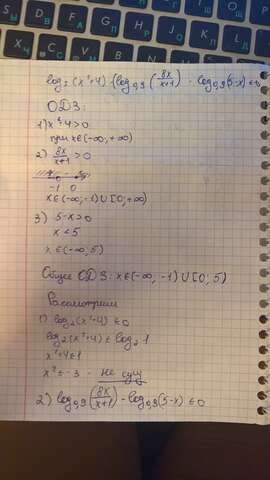 log₂(x²+4)·(log₀,₉(8x/(x+1)) - log₀,₉(5-x)) ≤ 0
ОДЗ:
1) x²+4>0
при x∈(-∞,+∞)
2) 8x/(x+1) >0
-1 0
x∈(-∞,-1)∪[0,+∞)
3) 5-x>0
x<5
x∈(-∞,5)
Общее ОДЗ: x∈(-∞,-1)∪[0;5)
Рассмотрим
1) log₂(x²+4) ≤0
log₂(x²+4) ≤ log₂1
x²+4≤1
x²≤-3 - не сущ
2) log₀,₉(8x/(x+1)) - log₀,₉(5-x) ≤0